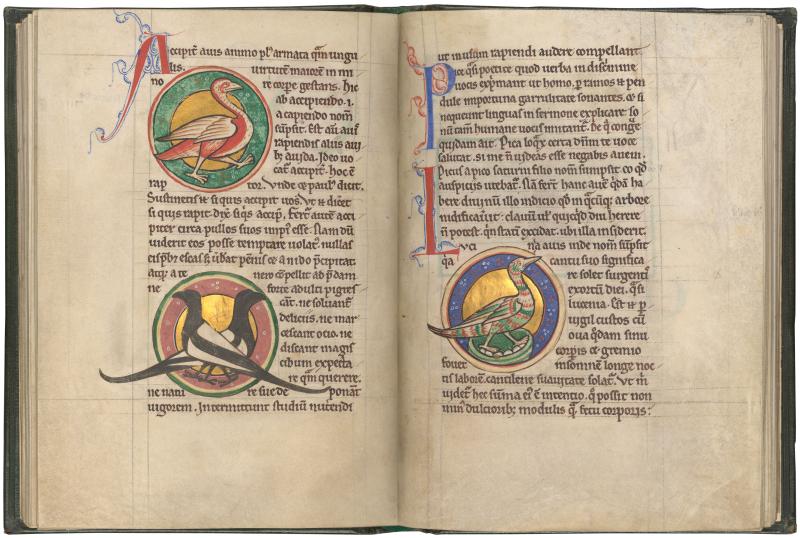 Accipit̄ auis animo pl᷒ armata q̄m ungu
lis. uirtutē maiorē in mi
no re corꝑe gestans. hic
ab accipiendo. i.
a capiendo nom̄
sūpsit. Est aūt
rapiendis aliis
auida. Ideo uo
catᷓ accipit̄. hoc ē
rap tor. Vnde ⁊ paul᷒ dicit.
Sustinetis si quis accipit uos. Vt ⁊ dicet̄
si quis rapit
piter circa pullos suos impi᷒ esse. Nam dū
uiderit eos posse temptare uolat᷒ nullas
escas ⁊ ūbat pēnis ⁊ a nido p̄cipitat.
atqꝫ a te nero cōpellit ad p̄dam
ne forte adulti pigres
cāt. ne soluant᷒
deliciis. ne mar
cescant ocio. ne
discant magis
cibum expecta
re q̄m querere.
ne natu re sue de ponāt
uigorem. Intermittunt studiū nutrendi
ut in usum rapiendi audere compellant.
Pice q̄si poetice quod uerba in discrimine
uocis exp̄mant ut homo. ꝑ ramos ⁊ pen
dule importuna garrulitate sonantes. ⁊ si
nequeunt linguas in sermone explicare. so
nū tam̄ humane uocis imitant᷒. De q̄ conḡe
quidam ait. Pica loq̄x certa dn̄m te uoce
saluto. si me n̄ uideas esse negabis auem.
Picus a pico saturni filio nom̄ sumpsit eo qd̄
auspiciis utebat᷒. Nā fert᷒ hanc auē q̄dā ha
bere diuinū illo indicio qd̄ in q̄cūqꝫ arbore
nidificauit᷒ clauū ul᷒ quicq̄d diu herere
n̄ potest. q̄n statī excidat. ubi illa insiderit.
Luci nia auis inde nom̄ sūpsit
q̄a cantu suo significa
re solet surgentis
exortū diei. q̄si
lucenia. Est ⁊ ꝑ
uigil custos cū
oua q̄dam sinu
corꝑis ⁊ gremio
fouet insomnē longe noc
tis laborē. cantilene suauitate solat᷒. Vt m̄
uidet᷒ hec sūma ei᷒ ē intentio. q̄ possit non
min᷒ dulciorib᷒ modulis q̄ fetu corporis: